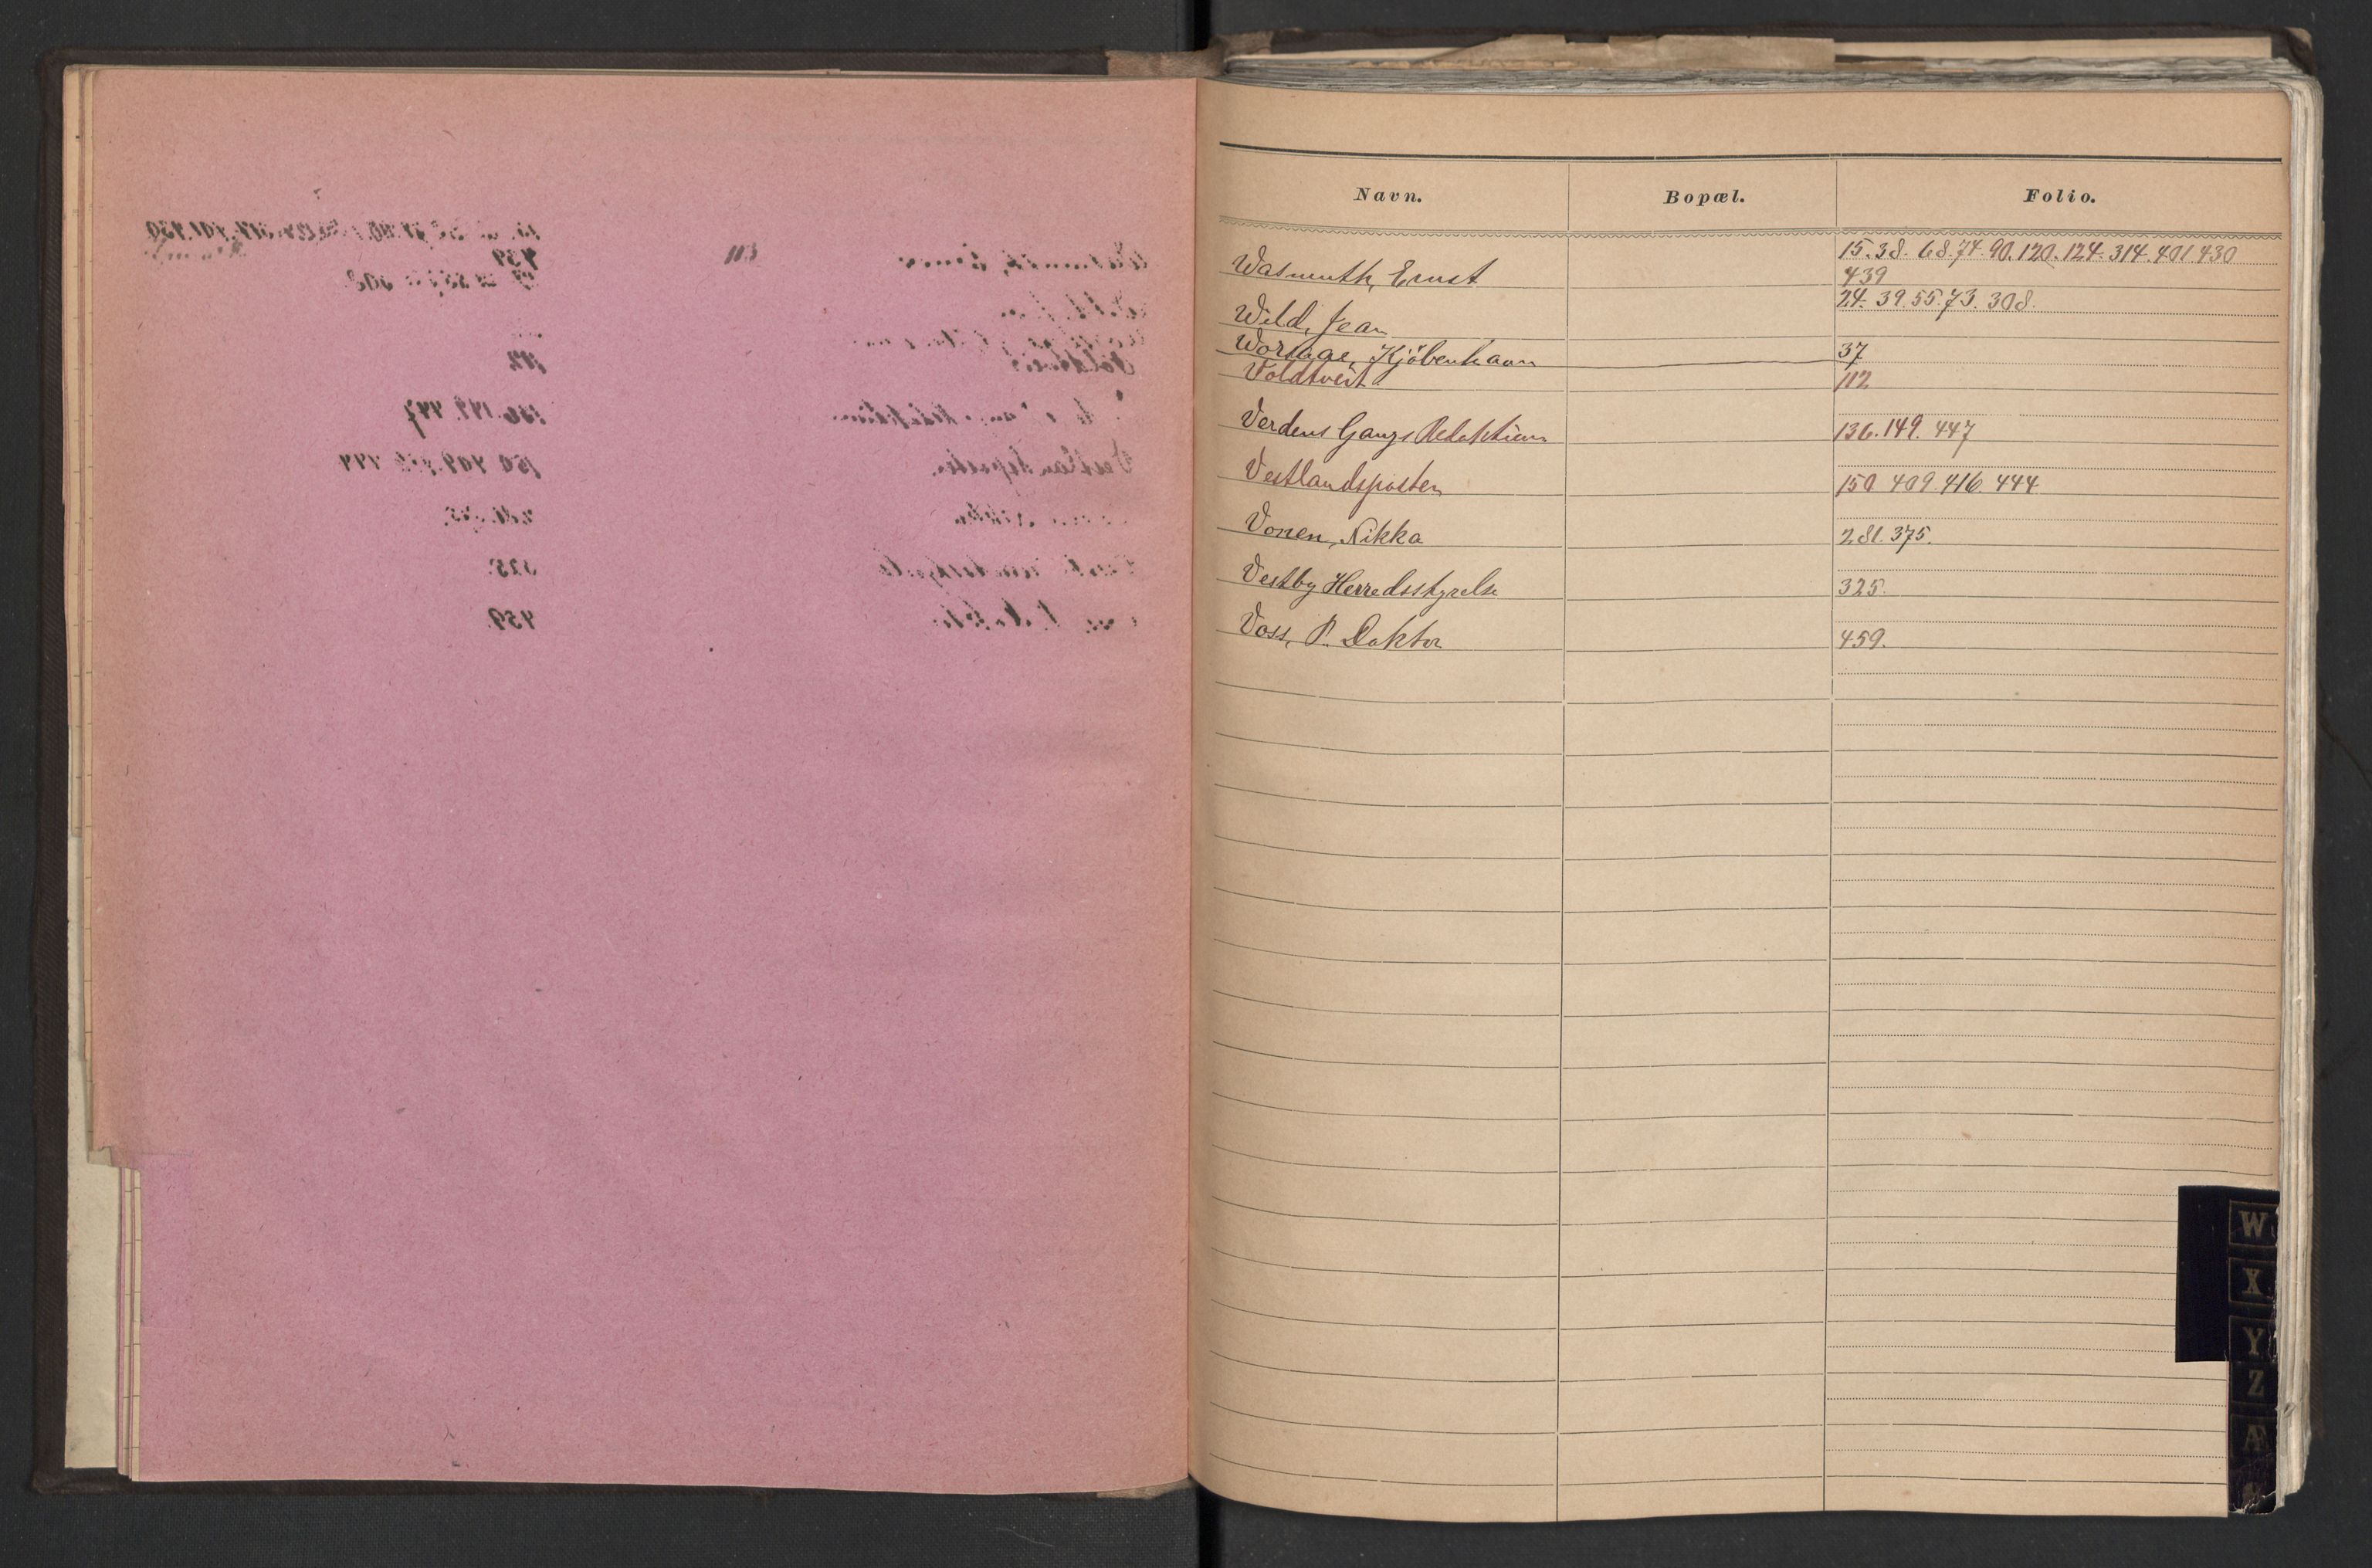 Navn. Bopæl. Folio.
Wasmuth, Ernst 15. 38. 68. 74. 90. 120. 124. 314. 401 430
439
Wild, Jean 24. 39. 55. 73. 308.
Worsaae, Kjöbenhavn 37
Voldtveit 112
Verdens Gangs Redaktion 136. 149. 447
Vestlandsposten 150 409. 416. 444
Vonen, Nikka 281. 375.
Vestby Herredsstyrelse 325.
Voss, P. Doktor 459.
W
X
Y
Z
Æ